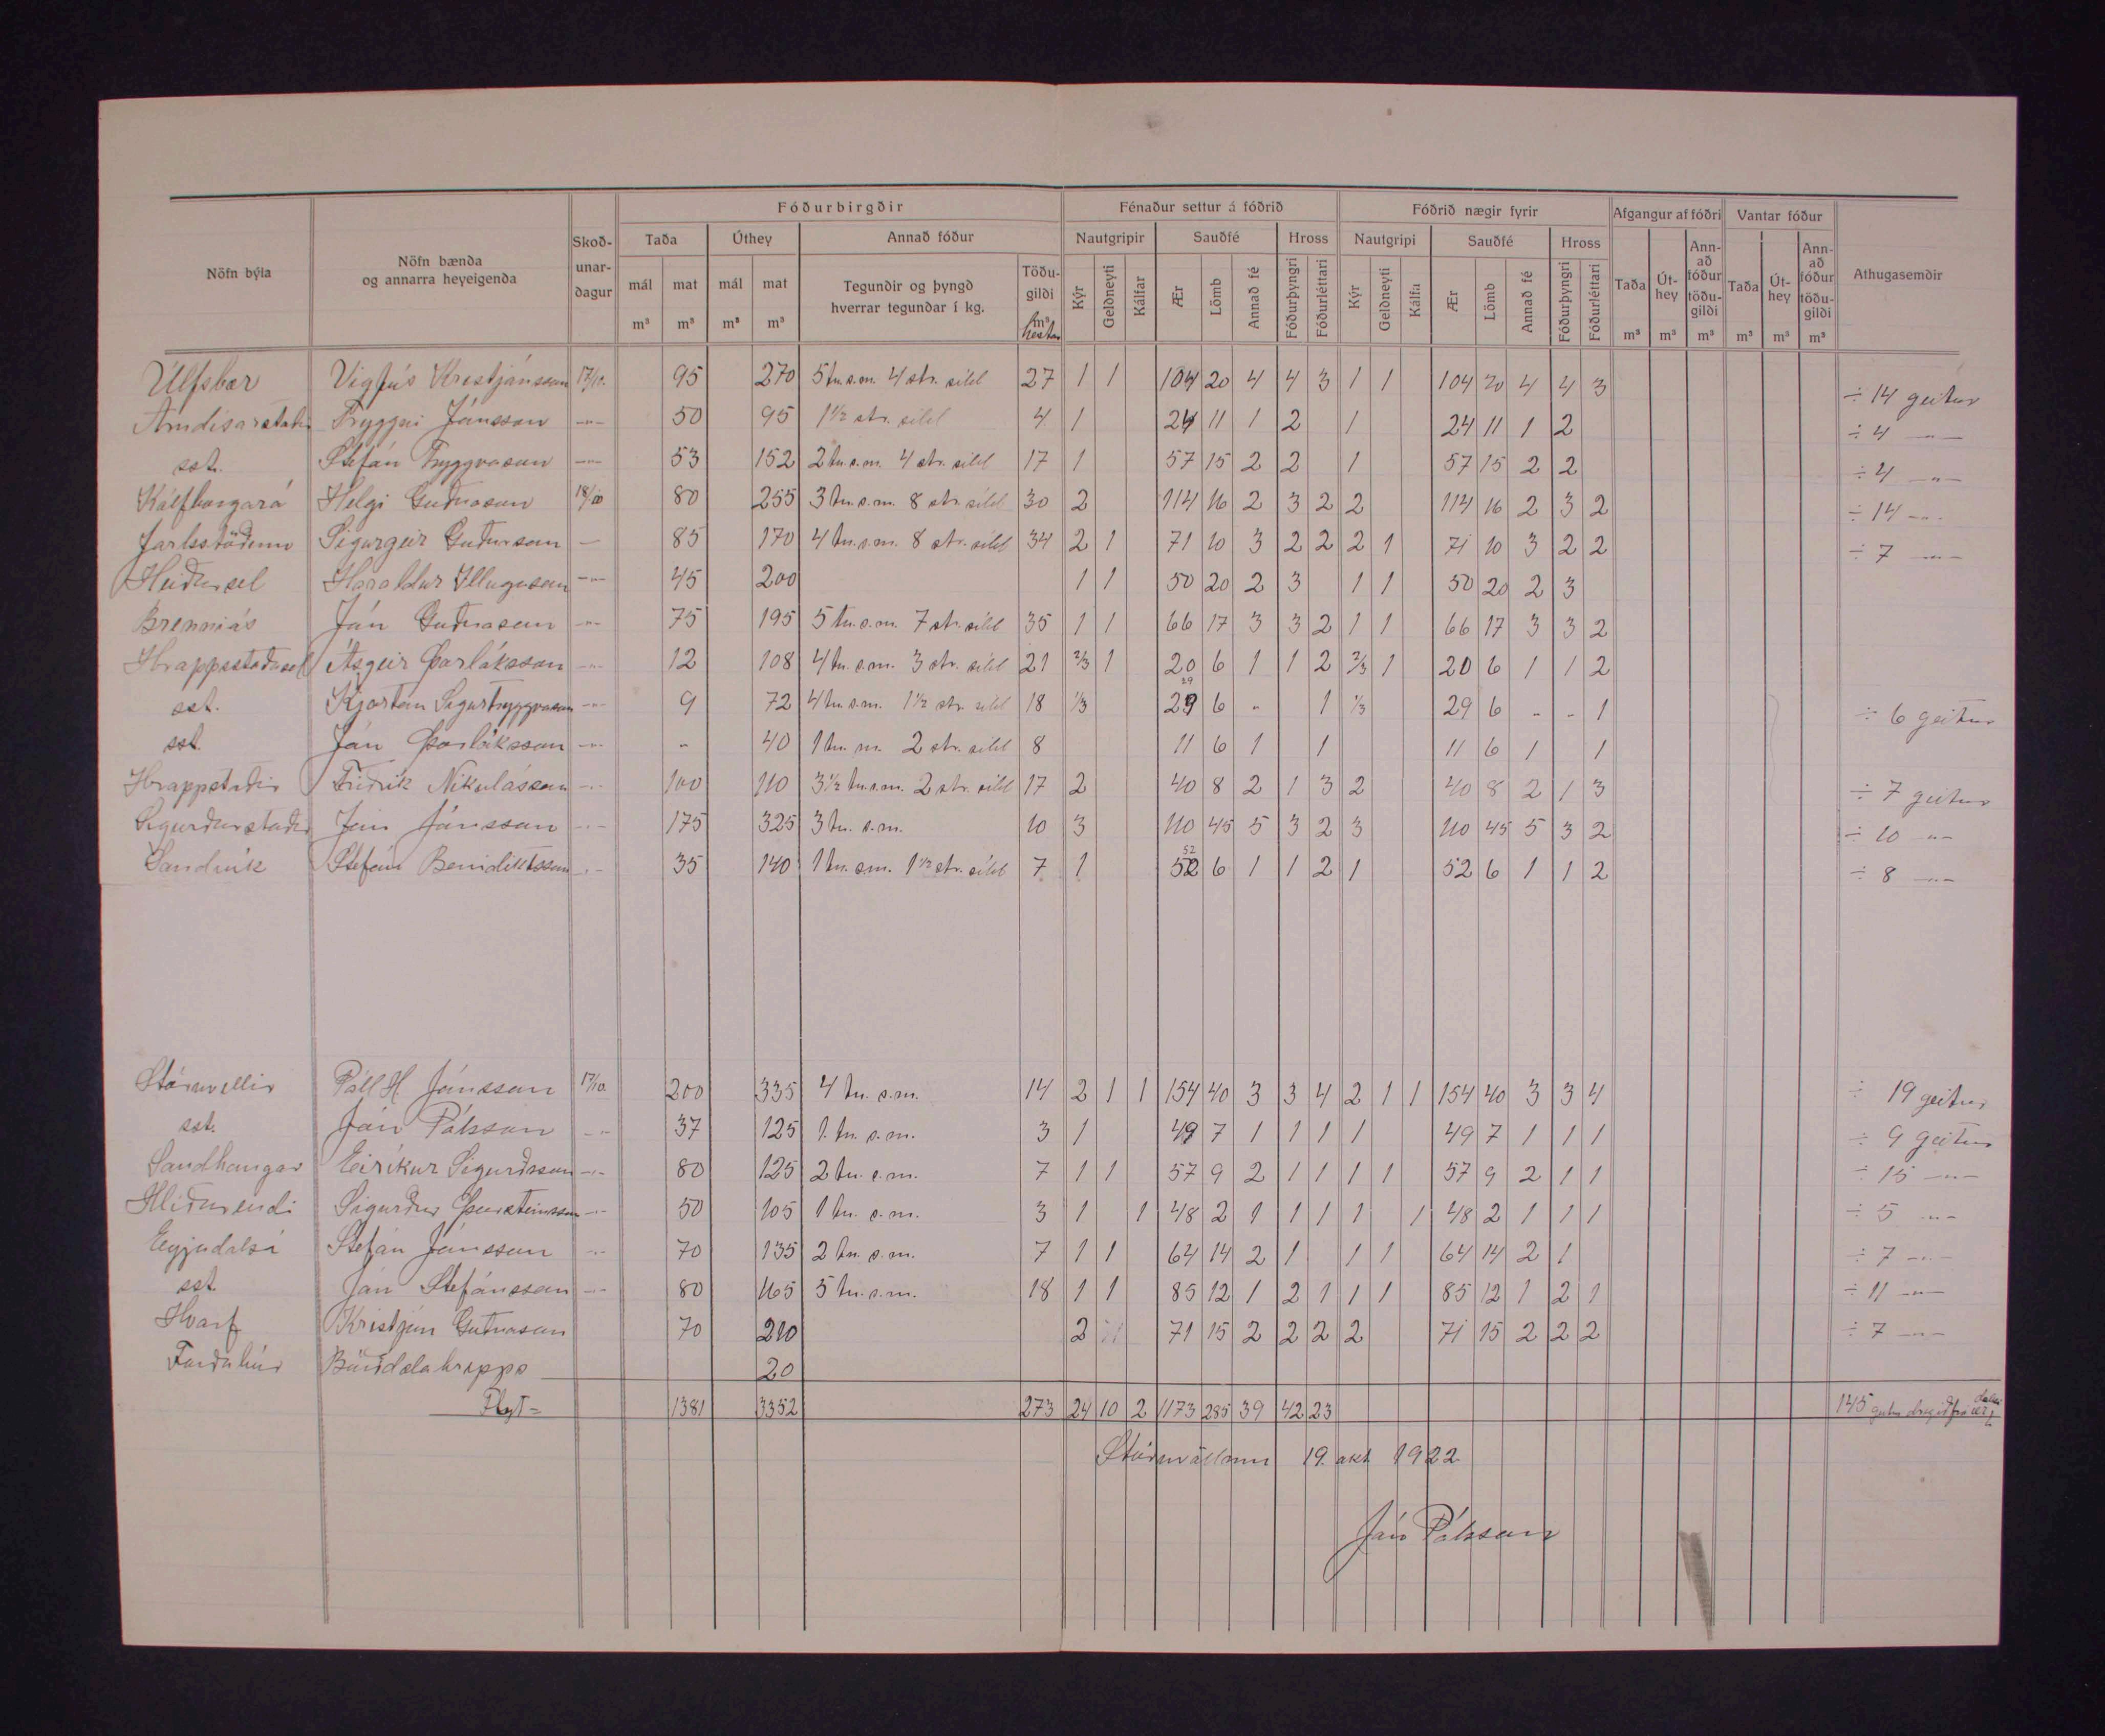 Fóðurbirgðir Fénaður settur á fóðrið Fóðrið nægir fyrir Afgangur af fóðri Vantar fóður
Nöfn býla Nöfn bænda og annarra heyeigenda Skoðunardagur Taða Úthey Annað fóður Nautgripir Sauðfé Hross Nautgripi Sauðfé Hross Taða Úthey Annað fóður töðugildi Taða Úthey Annað fóður töðugildi Athugasemdir
mál mat mál mat Tegundir og þyngd hverrar tegundar í kg. Töðugildi Kýr Geldneyti Kálfar Ær Lömb Annað fé Fóðurþyngri Fóðurléttari Kýr Geldneyti Kálfa Ær Lömb Annað fé Fóðurþyngri Fóðurléttari
m³ m³ m³ m³ m³ hestar m³ m³ m³ m³ m³ m³
Úlfsbær Vigfús Kristjánsson 17/10. 95 270 5 tn. s.m. 4 str. síld 27 1 1 104 20 4 4 3 1 1 104 20 4 4 3 ÷ 14 geitur
Arndísarstaðir Tryggvi Jónsson -"- 50 95 1½ str. síld 4 1 24 11 1 2 1 24 11 1 2 ÷ 4 -"-
sst. Stefán Tryggvason -"- 53 152 2 tn. s.m. 4 str. síld 17 1 57 15 2 2 1 57 15 2 2 ÷ 4 -"-
Kálfborgará Helgi Guðnason 18/10 80 255 3 tn. s.m. 8 str. síld 30 2 114 16 2 3 2 2 114 16 2 3 2 ÷ 14 -"-
Jarlsstöðum Sigurgeir Guðnason - 85 170 4 tn. s.m. 8 str. síld 34 2 1 71 10 3 2 2 2 1 71 10 3 2 2 ÷ 7 -"-
Heiðarsel Haraldur Illugason -"- 45 200 1 1 50 20 2 3 1 1 50 20 2 3
Brenniás Jón Guðnason -"- 75 195 5 tn. s.m. 7 str. síld 35 1 1 66 17 3 3 2 1 1 66 17 3 3 2
Hrappsstaðasel Ásgeir Þorláksson -"- 12 108 4 tn. s.m. 3 str. síld 21 2/3 1 20 6 1 1 2 2/3 1 20 6 1 1 2
sst. Kjartan Sigurtryggvason -"- 9 72 4 tn. s.m. 1½ str. síld 18 1/3 29 29 6 - 1 1/3 29 6 - - 1 ÷ 6 geitur
sst. Jón Þorláksson -"- - 40 1 tn. m. 2 str. síld 8 11 6 1 1 11 6 1 1
Hrappstaðir Friðrik Nikulásson -"- 100 110 3½ tn. s.m. 2 str. síld 17 2 40 8 2 1 3 2 40 8 2 1 3 ÷ 7 geitur
Sigurðarstaðir Jón Jónsson -"- 175 325 3 tn. s.m. 10 3 110 45 5 3 2 3 110 45 5 3 2 ÷ 10 -"-
Sandvík Stefán Benidiktsson -"- 35 140 1 tn. sm. 1½ str. síld 7 1 52 52 6 1 1 2 1 52 6 1 1 2 ÷ 8 -"-
Stóruvellir Páll H. Jónsson 17/10 200 335 4 tn. s.m. 14 2 1 1 154 40 3 3 4 2 1 1 154 40 3 3 4 ÷ 19 geitur
sst. Jón Pálsson -"- 37 125 1. tn. s.m. 3 1 49 7 1 1 1 1 49 7 1 1 1 ÷ 9 geitur
Sandhaugar Eiríkur Sigurðsson -"- 80 125 2 tn. s.m. 7 1 1 57 9 2 1 1 1 1 57 9 2 1 1 ÷ 15 -"-
Hlíðarendi Sigurður Þorsteinsson -"- 50 105 1 tn. s.m. 3 1 1 48 2 1 1 1 1 1 48 2 1 1 1 ÷ 5 -"-
Eyjadalsá Stefán Jónsson -"- 70 135 2 tn. s.m. 7 1 1 64 14 2 1 1 1 64 14 2 1 ÷ 7 -"-
sst. Jón Stefánsson -"- 80 165 5 tn. s.m. 18 1 1 85 12 1 2 1 1 1 85 12 1 2 1 ÷ 11 -"-
Hvarf Kristján Guðnason 70 210 2 71 15 2 2 2 2 71 15 2 2 2 ÷ 7 -"-
Forðabúr Bárðdælahrepps 20
Flyt= 1381 3352 273 24 10 2 1173 285 39 42 23 145 geitur dregið frá
Stóruvöllum 19. okt 1922
Jón Pálsson